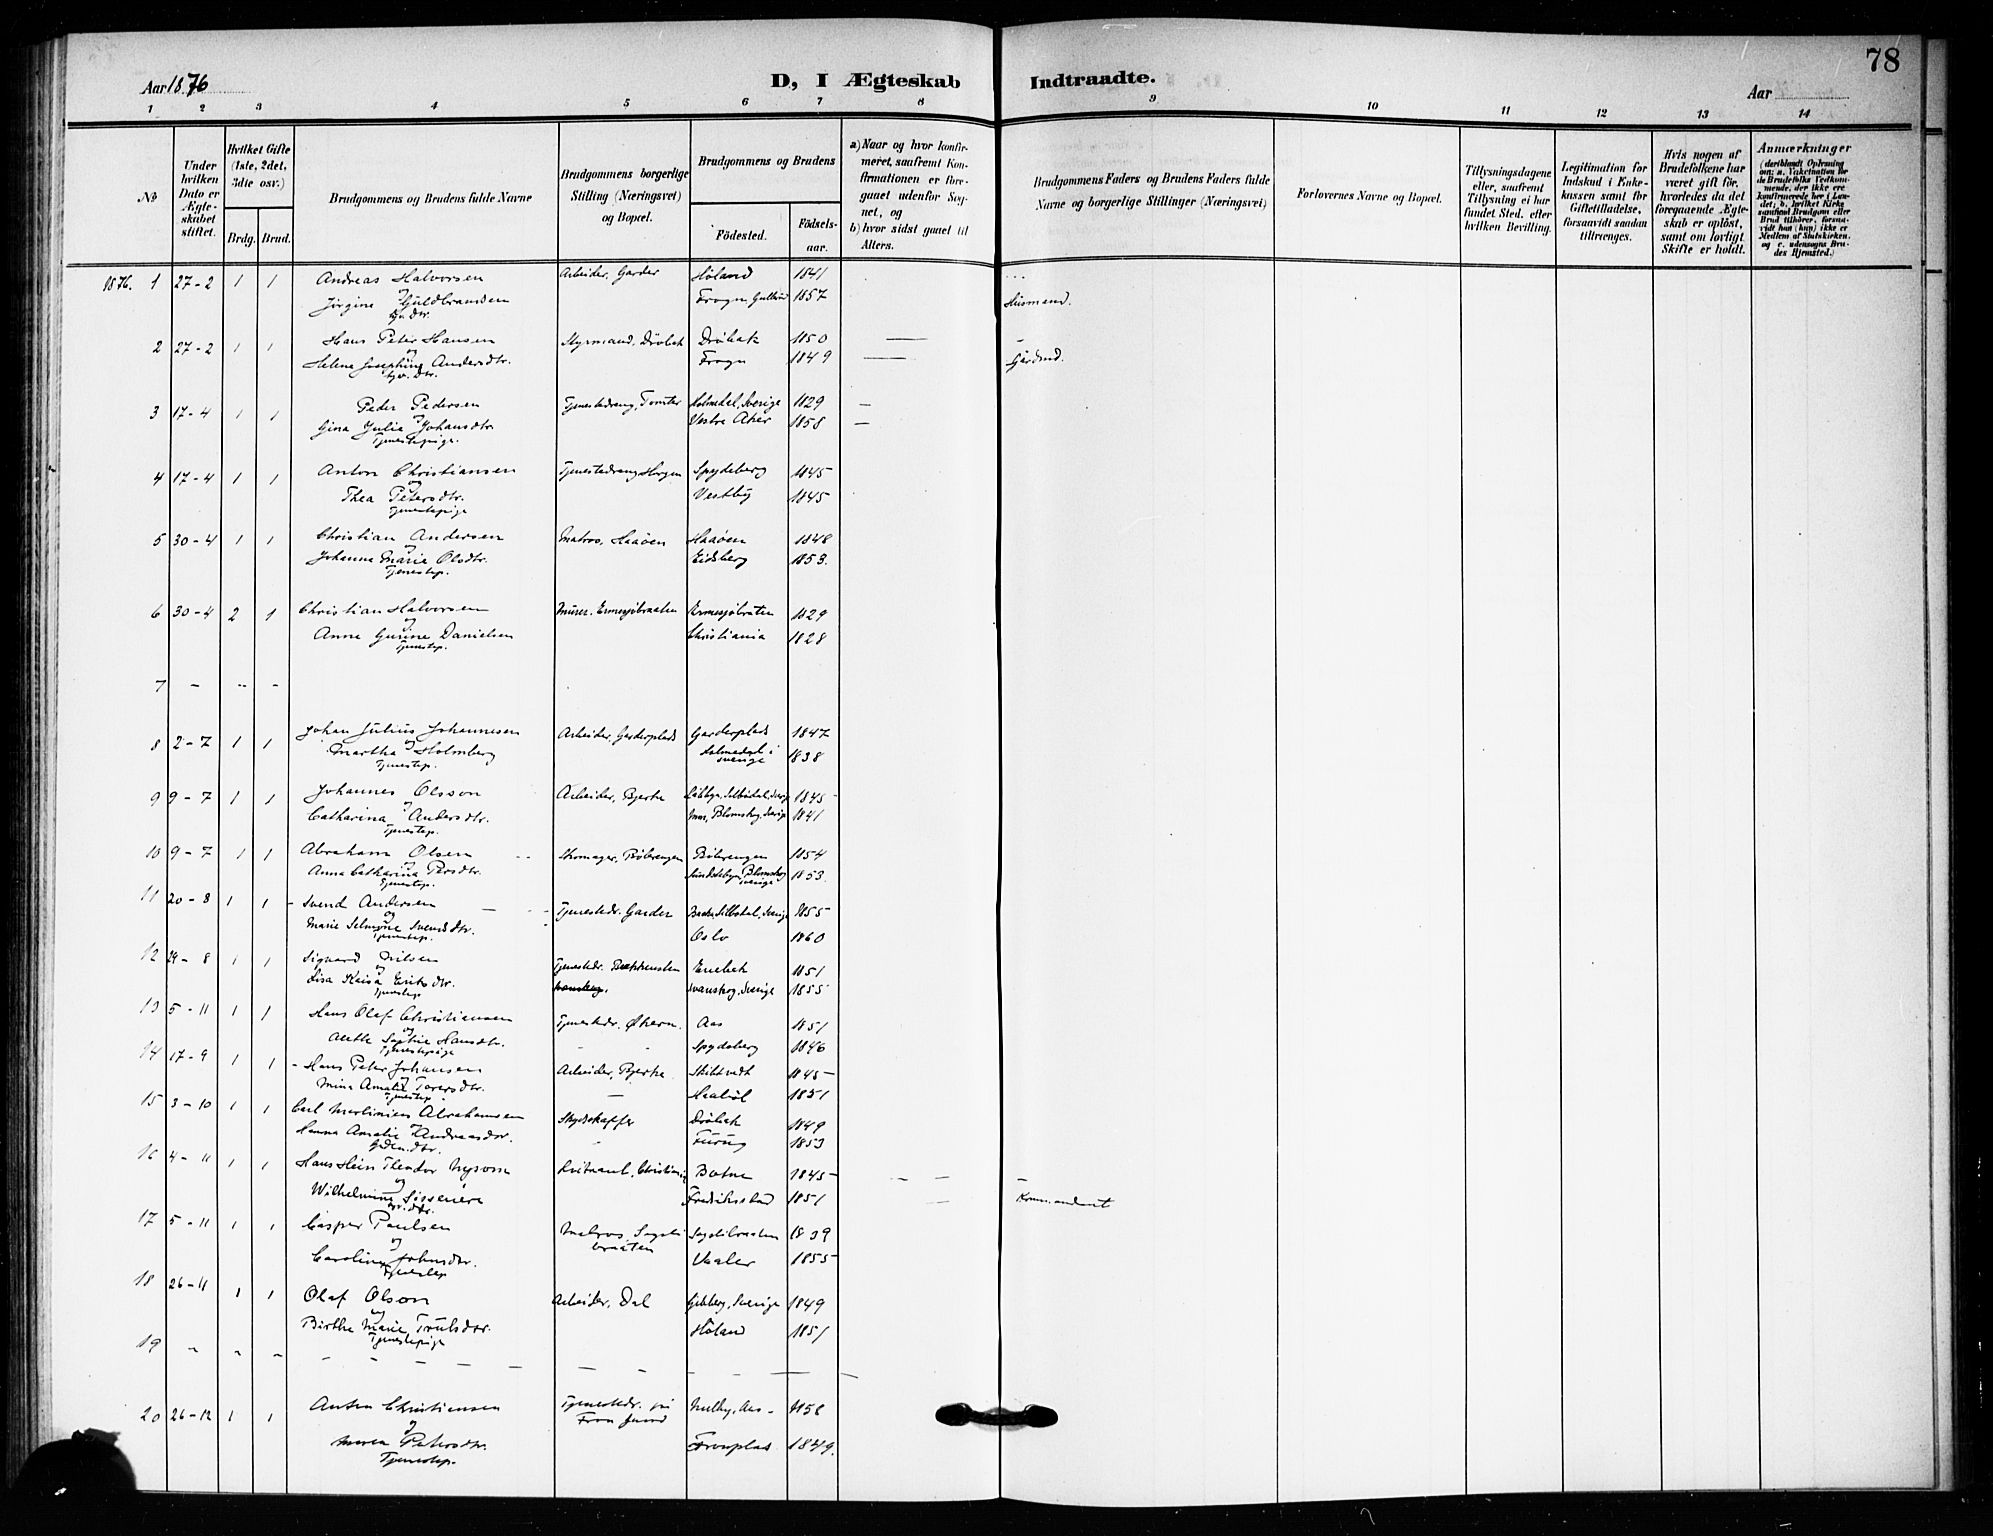 78
Aar 1876
D, I Ægteskab
Indtraadte.
Aar
1 2 3 4 5 6 7 8 9 10 11 12 13 14
№
Under hvilken Dato er Ægteskabet stiftet.
Hvilket Gifte (1ste, 2det, 3die osv.)
Brdg. Brud.
Brudgommens og Brudens fulde Navne
Brudgommens borgerlige Stilling (Næringsvei) og Bopæl.
Brudgommens og Brudens
Fødested.
Fødselsaar.
a) Naar og hvor konfirmeret, saafremt Konfirmationen er foregaaet udenfor Sognet, og
b) hvor sidst gaaet til Alters.
Brudgommens Faders og Brudens Faders fulde Navne og borgerlige Stillinger (Næringsvei)
Forlovernes Navne og Bopæl.
Tillysningsdagene eller, saafremt Tillysning ei har fundet Sted, efter hvilken Bevilling.
Legitimation for Indskud i Enkekassen samt for Giftetilladelse, forsaavidt saadan tiltrænges.
Hvis nogen af Brudefolkene har været gift før, hvorledes da det foregaaende Ægteskab er opløst, samt om lovligt Skifte er holdt.
Anmærkninger
1876. 1 27-2 1 1 Andreas Halvorsen Arbeider, Garder Høland 1841
og
Jørgine Guldbrandsen Frogn 1857 Husmand.
2 27-2 1 1 Hans Peter Hansen Styrmand, Drøbak Drøbak 1850
og
Helene Josephine Andersdtr. Frogn 1849 Gårdmd.
3 17-4 1 1 Peder Pedersen Tjenestedreng, Tomter Holmedal, Sverige 1829
og
Gina Julia Johansdtr. Vestre Aker 1858
Tjenestepige.
4 17-4 1 1 Anton Christiansen Tjenestedreng Horgen Spydeberg 1845
og
Thea Petersdtr. Vestby 1845
Tjenestepige
5 30-4 1 1 Christian Andersen Matros, Haaøen Haaøen 1848
og
Johanna Marie Olsdtr. Eidsberg 1853.
Tjenestep.
6 30-4 2 1 Christian Halvorsen Murer. Ermesjøbraaten Ermesjøbråten 1829
og
Anne Gurine Danielsen Christiania 1828
Tjenestep.
7 - -- -
8 2-7 1 1 Johan Julius Johannesen Arbeider, Garderplads Garderplads 1847
og
Martha Holmberg Holmedal i Sverige 1838
Tjenestep.
9 9-7 1 1 Johannes Olsson Arbeider, Bjerke 1845
og
Catharina Andersdtr. Blomskog, Sverig 1841
Tjenestep.
10 9-7 1 1 Abraham Olsen Skomager, Bølerengen Bølerengen 1854
og
Anna Catharina Persdtr. Blomskog Sverige 1853.
Tjenestep.
11 20-8 1 1 - Svend Andersen Tjenestedr. Garder 1855
og
Marie Svendsdtr. Oslo 1860
Tjenestep.
12 29-8 1 1 Sigvard Nilsen Tjenestedr. Enebak 1851
og
Lisa Kaisa Eriksdtr. Svanskog, Sverige 1855
Tjenestep
13 5-11 1 1 Hans Olaf Christiansen Tjenestedr. Økern. Aas 1851
og
Anette Sophie Hansdtr. Spydeberg 1846
Tjenestepige
14 17-9 1 1 - Hans Peter Johansen Arbeider, Bjerke Skibtvedt 1845
og
Mina Amalie Torersdtr. Haabøl 1851
Tjenestep
15 3-10 1 1 Carl Martinius Abrahamsen Skydsskaffer Drøbak 1849
og
Hanna Amalie Andreasdtr. 1853
16 4-11 1 1 Hans Hein Theodor Nysom Christiania Botne 1845
og
Wilhelmine Sissenère Fredrikstad 1851 Kommandant
17 5-11 1 1 Casper Paulsen Matros, Sagstibraaten Sagstibraaten 1839
og
Caroline Johnsdtr. Vaaler 1855
Tjenestep
18 26-11 1 1 Olaf Olson Arbeider, Dal Sverige 1849
og
Birthe Marie Trulsdtr. Høland 1851
Tjenestepige
19 " " "
20 26-12 1 1 Anton Christiansen Tjenestedr. på Fron 1858
og
Maren Petersdtr. Fronplas 1849.
Tjenestep.